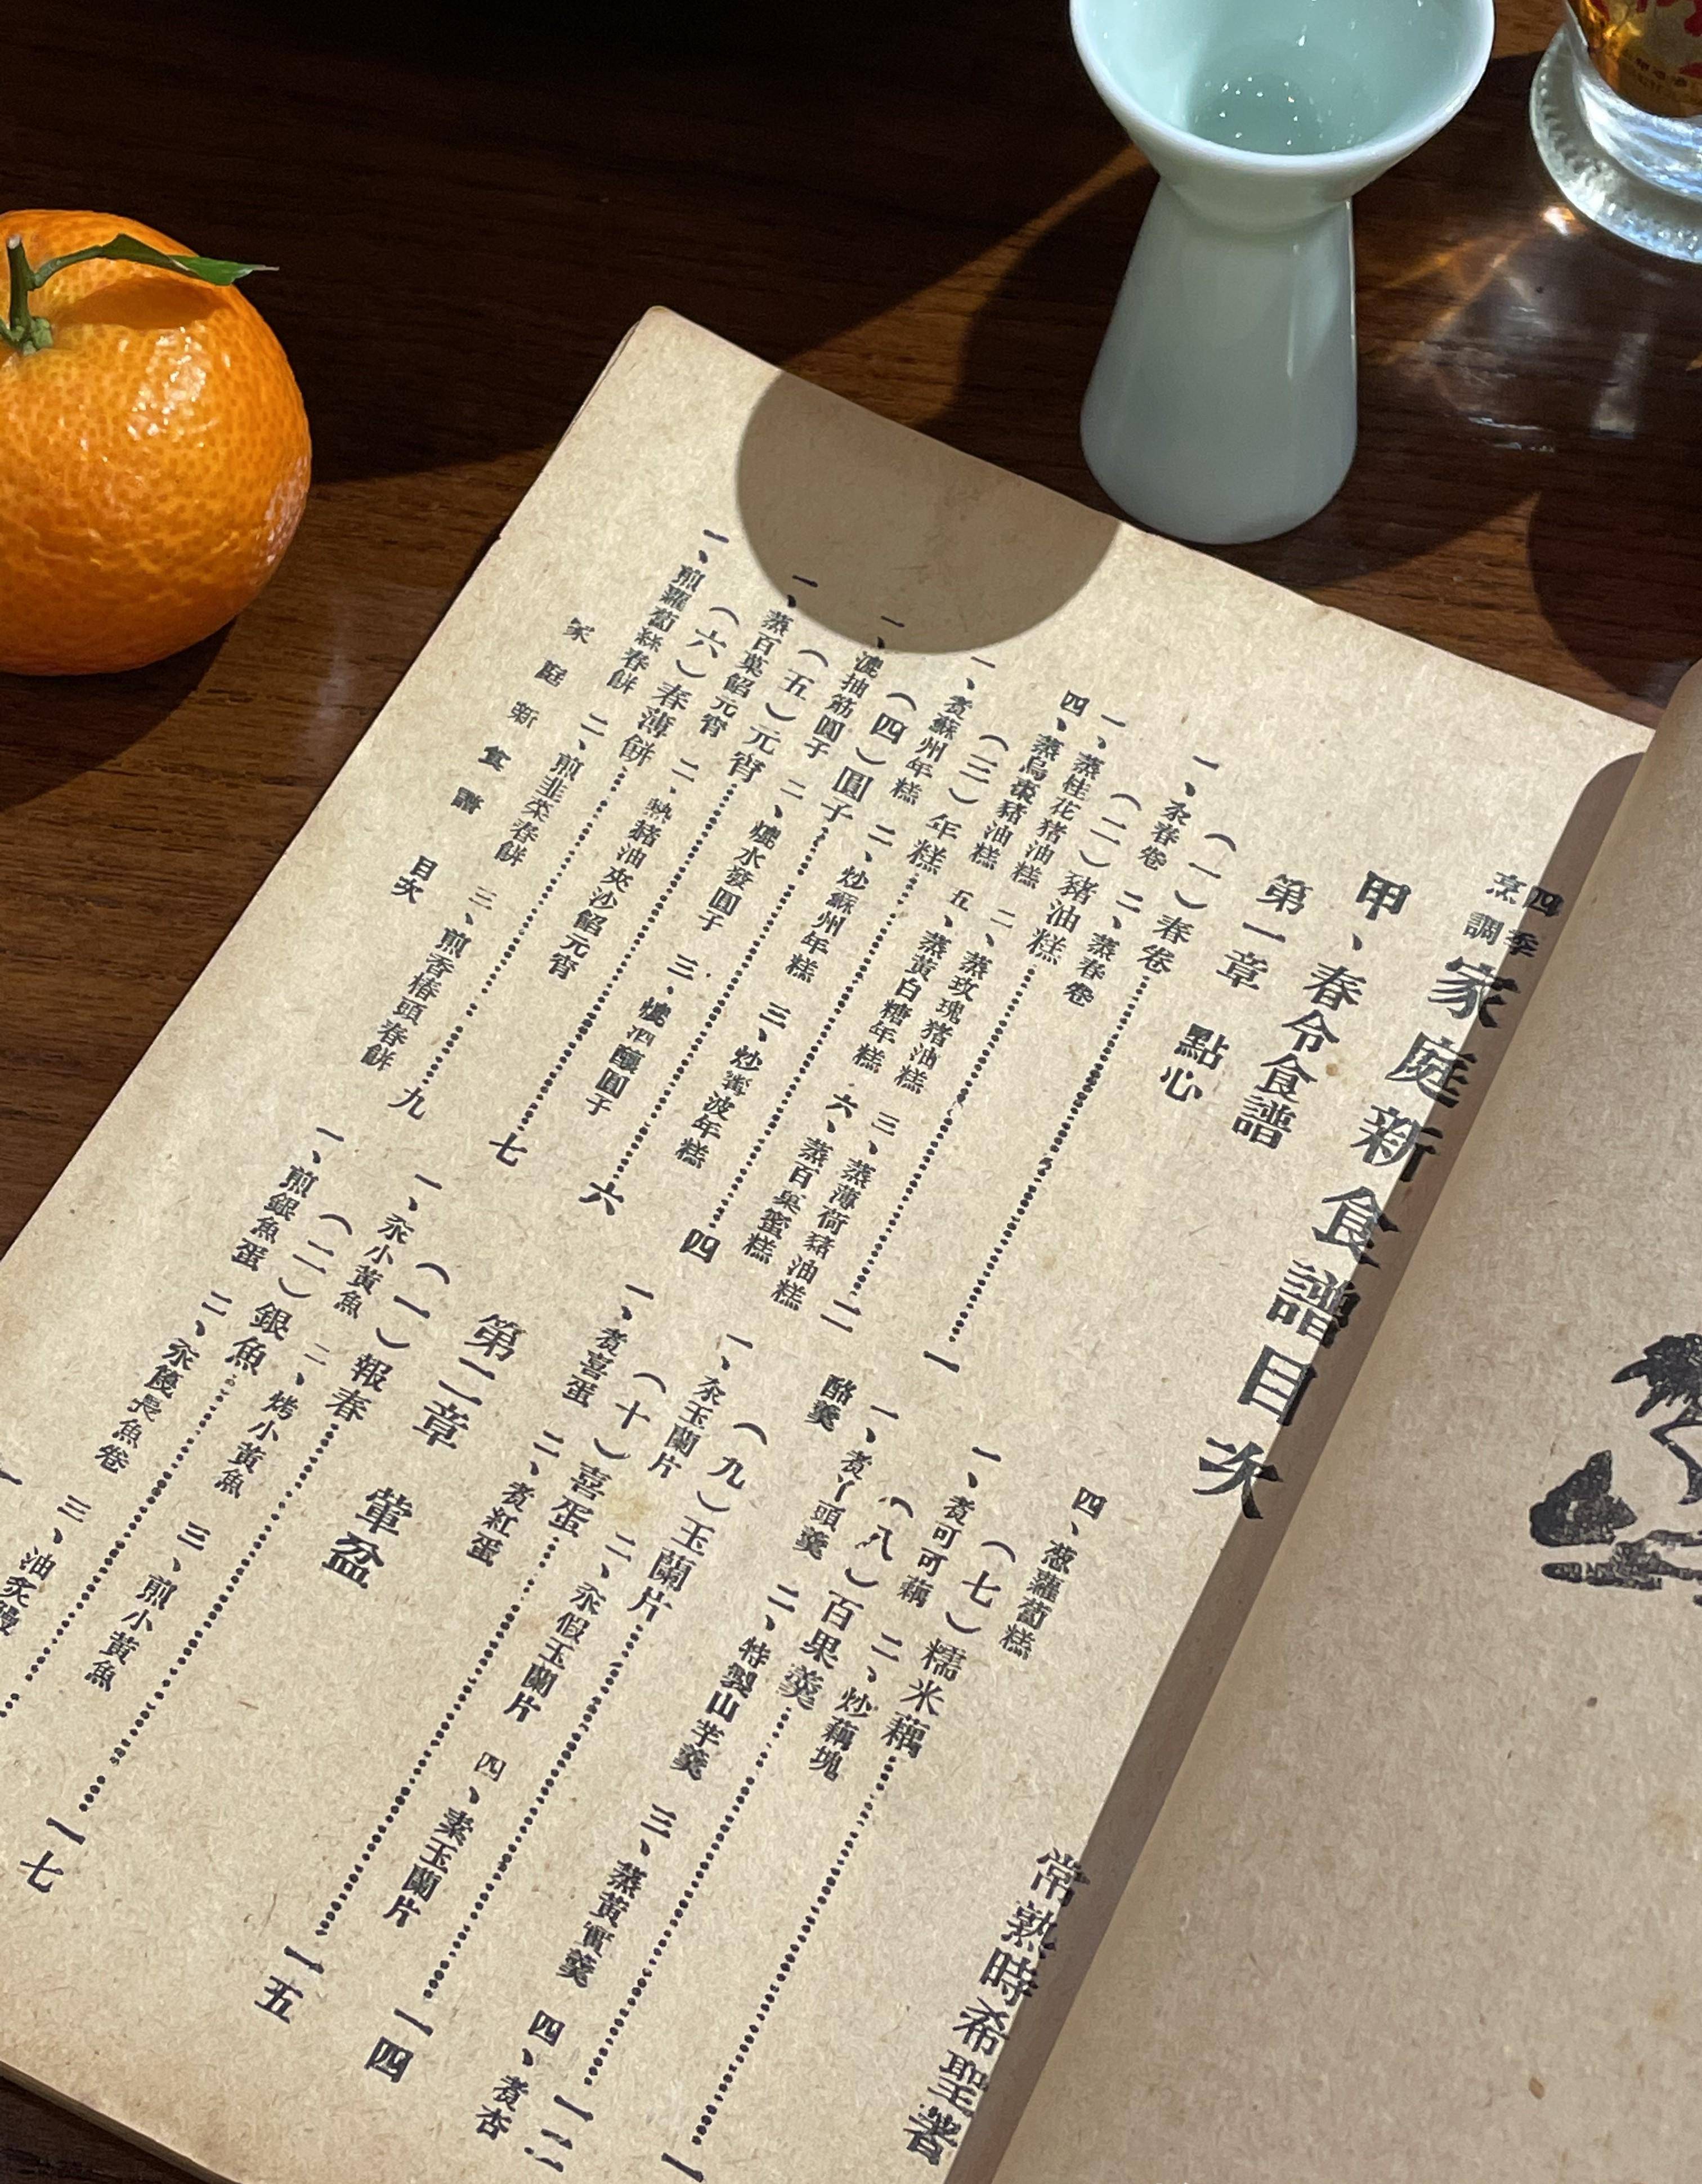 四季
烹調
家庭新食譜目次
常熟時希聖著
甲、春令食譜
第一章 點心
(一)春卷……一
一、汆春卷 二、蒸春卷
(二)豬油糕……二
一、蒸桂花猪油糕 二、蒸玫瑰猪油糕 三、蒸薄荷豬油糕
四、蒸烏棗豬油糕 五、蒸黃白糖年糕 六、蒸百菓蜜糕
(三)年糕……四
一、煮蘇州年糕 二、炒蘇州年糕 三、炒寗波年糕
(四)圓子……六
一、漉抽筋圓子 二、爊水發圓子 三、爊酒釀圓子
(五)元宵……七
一、蒸百菓餡元宵 二、熱豬油夾沙餡元宵
(六)春薄餅……九
一、煎蘿蔔絲春餅 二、煎韭菜春餅 三、煎香椿頭春餅
四、葱蘿蔔糕
(七)糯米藕……一
一、煮可可藕 二、炒藕塊
(八)百果羹……一二
一、煮丫頭羹 二、特製山芋羹 三、蒸黃實羹 四、煮杏
酪羹
(九)玉蘭片……一四
一、汆玉蘭片 二、汆假玉蘭片 四、素玉蘭片
(十)喜蛋……一五
一、煮喜蛋 二、煮紅蛋
第二章 葷盆
(一)報春……一七
一、汆小黃魚 二、烤小黃魚 三、煎小黃魚
(二)銀魚……
一、煎銀魚蛋 二、汆饅長魚卷 三、油炙鰻
家庭新食譜 目次